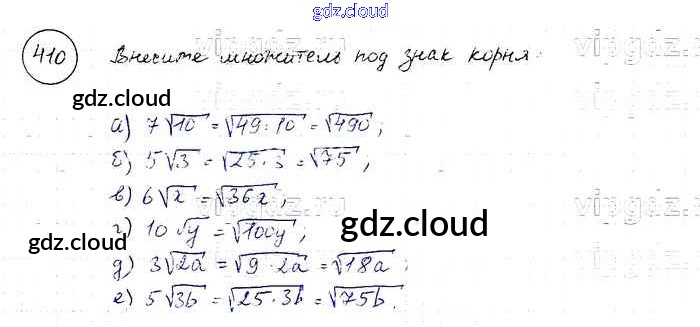 gdz.cloud
410 Внесите множитель под знак корня.
vipgdz.ru
gdz.cloud
а) 7√10 = √49·10 = √490;
б) 5√3 = √25·3 = √75,
в) 6√x = √36x,
vipgdz.ru
г) 10√y = √100y;
gdz.cloud
gdz.cloud
д) 3√2a = √9·2a = √18a;
е) 5√3b = √25·3b = √75b.